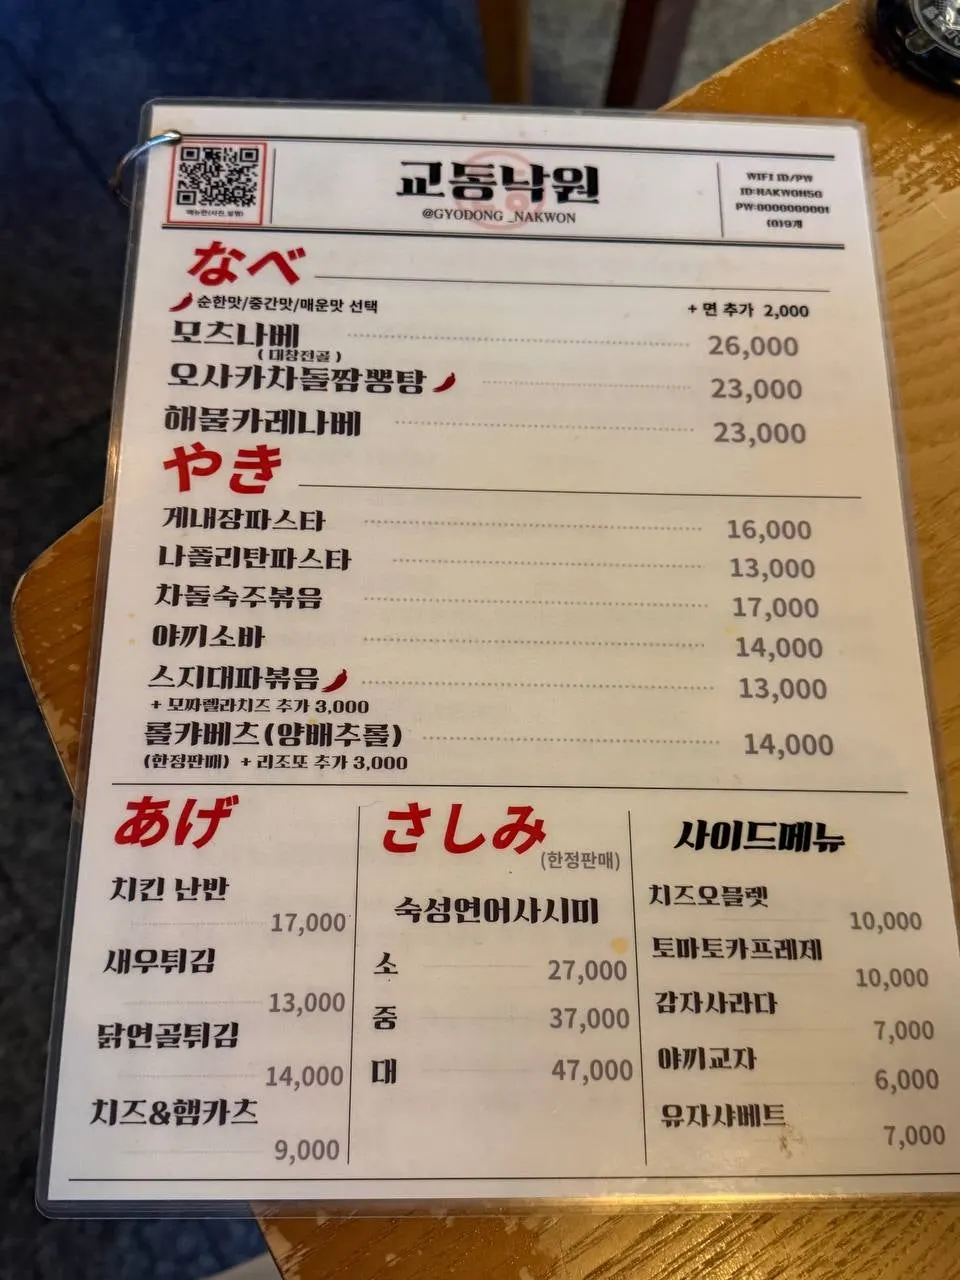 메뉴판(사진,설명)
교동낙원
@GYODONG_NAKWON
WIFI ID/PW
ID:NAKWON5G
PW:0000000001
(0)9개
なべ
순한맛/중간맛/매운맛 선택
+ 면 추가 2,000
모츠나베 26,000
(대창전골)
오사카차돌짬뽕탕 23,000
해물카레나베 23,000
やき
게내장파스타 16,000
나폴리탄파스타 13,000
차돌숙주볶음 17,000
야끼소바 14,000
스지대파볶음 13,000
+ 모짜렐라치즈 추가 3,000
롤캬베츠(양배추롤) 14,000
(한정판매) + 리조또 추가 3,000
あげ
치킨 난반
17,000
새우튀김
13,000
닭연골튀김
14,000
치즈&햄카츠
9,000
さしみ
(한정판매)
숙성연어사시미
소 27,000
중 37,000
대 47,000
사이드메뉴
치즈오믈렛
10,000
토마토카프레제
10,000
감자사라다
7,000
야끼교자
6,000
유자샤베트
7,000